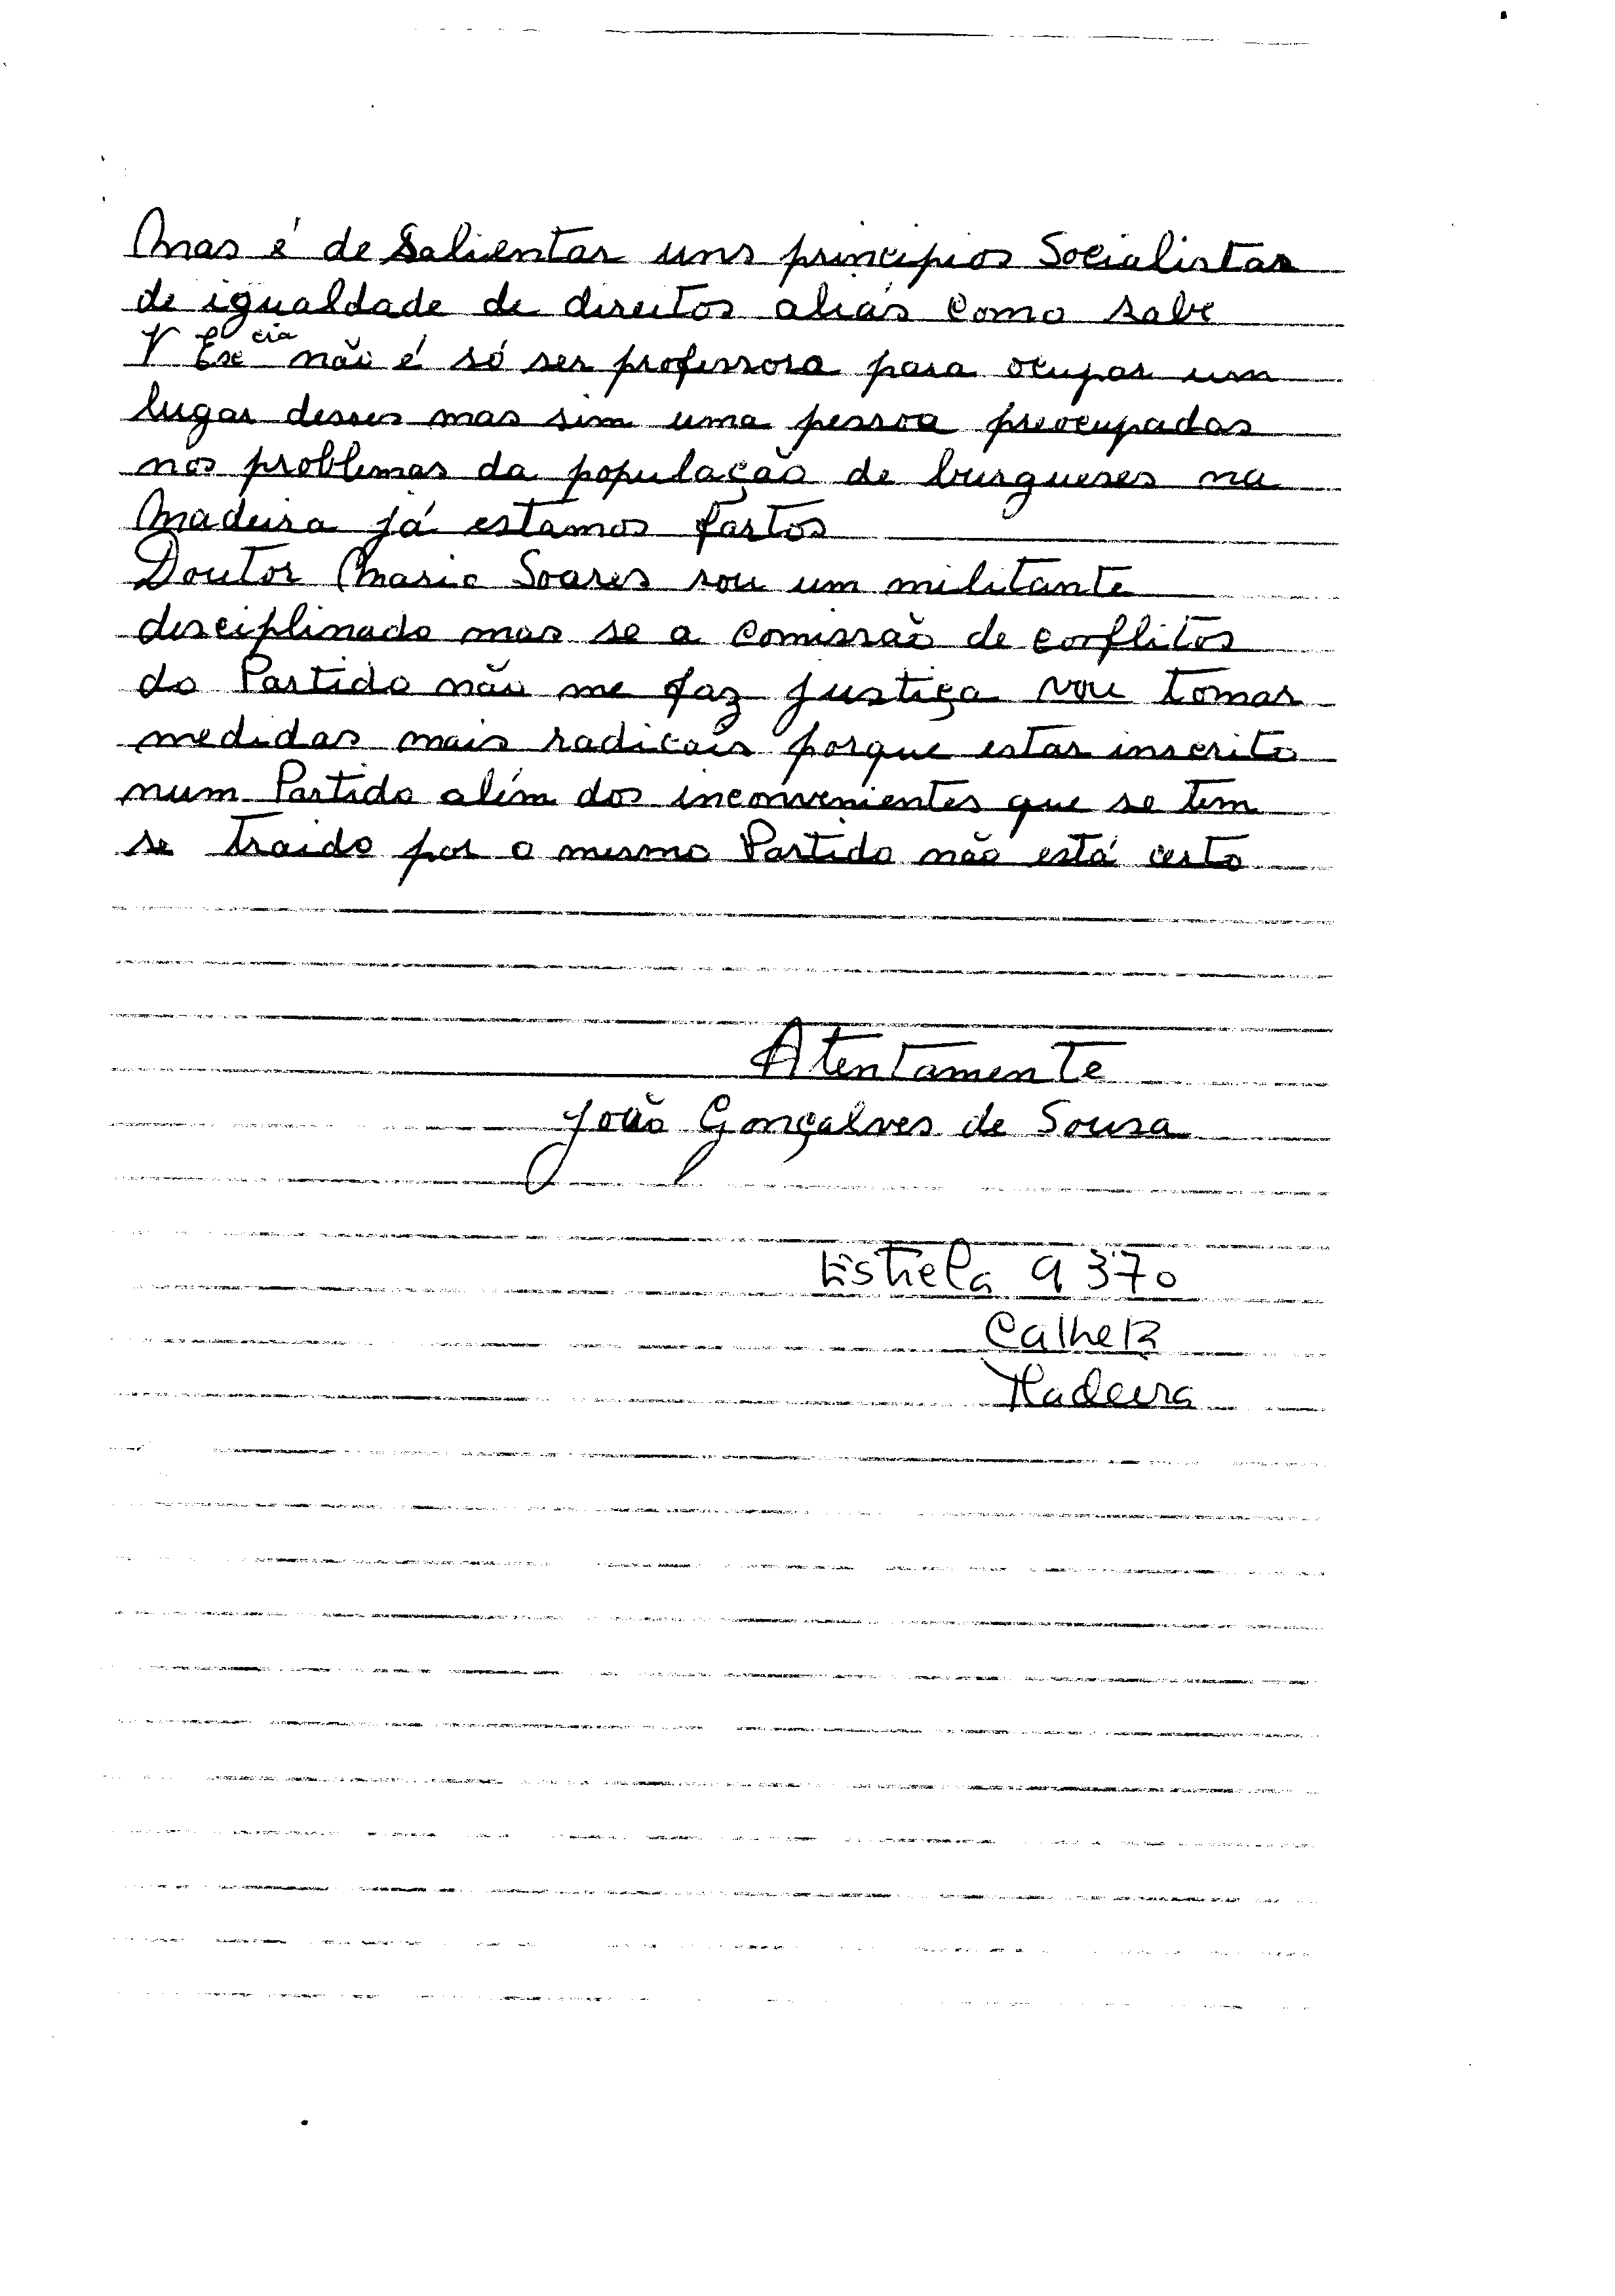 Mas é de Salientar uns principios Socialistas
de igualdade de direitos aliás como sabe
V Exª cia não é só ser professora para ocupar um
lugar desses mas sim uma pessoa preocupadas
nos problemas da população de burgueses na
Madeira já estamos fartos
Doutor Mario Soares sou um militante
disciplinado mas se a comissão de conflitos
do Partido não me faz justiça vou tomar
medidas mais radicais porque estar inscrito
num Partido além dos inconvenientes que se tem
se traido por o mesmo Partido não está certo
Atentamente
João Gonçalves de Sousa
Estrela 9370
Calheta
Madeira